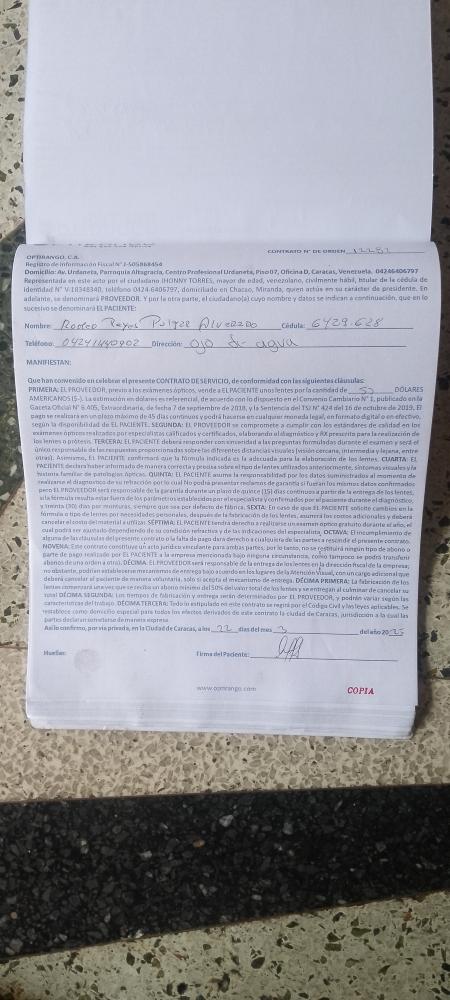 CONTRATO N° DE ORDEN 12281
OPTIRANGO, C.A.
Registro de Información Fiscal N° J-505868454
Domicilio: Av. Urdaneta, Parroquia Altagracia, Centro Profesional Urdaneta, Piso 07, Oficina D, Caracas, Venezuela. 04246406797
Representada en este acto por el ciudadano JHONNY TORRES, mayor de edad, venezolano, civilmente hábil, titular de la cédula de
identidad N° V-18348340, teléfono 0424-6406797, domiciliado en Chacao, Miranda, quien actúa en su carácter de presidente. En
adelante, se denominará PROVEEDOR. Y por la otra parte, el ciudadano(a) cuyo nombre y datos se indican a continuación, que en lo
sucesivo se denominará EL PACIENTE:
Nombre: Reyes Pulgar Alvarado Cédula: 6429.628
Teléfono: 04241440902 Dirección: ojo de agua
MANIFIESTAN:
Que han convenido en celebrar el presente CONTRATO DE SERVICIO, de conformidad con las siguientes cláusulas:
PRIMERA: EL PROVEEDOR, previo a los exámenes ópticos, vende a EL PACIENTE unos lentes por la cantidad de 50 DÓLARES
AMERICANOS ($-). La estimación en dólares es referencial, de acuerdo con lo dispuesto en el Convenio Cambiario N° 1, publicado en la
Gaceta Oficial N° 6.405, Extraordinaria, de fecha 7 de septiembre de 2018, y la Sentencia del TSJ N° 424 del 16 de octubre de 2019. El
pago se realizará en un plazo máximo de 45 días continuos y podrá hacerse en cualquier moneda legal, en formato digital o en efectivo,
según la disponibilidad de EL PACIENTE. SEGUNDA: EL PROVEEDOR se compromete a cumplir con los estándares de calidad en los
exámenes ópticos realizados por especialistas calificados y certificados, elaborando el diagnóstico y RX prescrito para la realización de
los lentes o prótesis. TERCERA: EL PACIENTE deberá responder con sinceridad a las preguntas formuladas durante el examen y será el
único responsable de las respuestas proporcionadas sobre las diferentes distancias visuales (visión cercana, intermedia y lejana, entre
otras). Asimismo, EL PACIENTE confirmará que la fórmula indicada es la adecuada para la elaboración de los lentes. CUARTA: EL
PACIENTE declara haber informado de manera correcta y precisa sobre el tipo de lentes utilizados anteriormente, síntomas visuales y la
historia familiar de patologías ópticas. QUINTA: EL PACIENTE asume la responsabilidad por los datos suministrados al momento de
realizarse el diagnóstico de su refracción por lo cual No podrá presentar reclamos de garantía si fueran los mismos datos confirmados
pero EL PROVEEDOR será responsable de la garantía durante un plazo de quince (15) días continuos a partir de la entrega de los lentes,
si la fórmula resulta estar fuera de los parámetros establecidos por el especialista y confirmados por el paciente durante el diagnóstico,
y treinta (30) días por monturas, siempre que sea por defecto de fábrica. SEXTA: En caso de que EL PACIENTE solicite cambios en la
fórmula o tipo de lentes por necesidades personales, después de la fabricación de los lentes, asumirá los costos adicionales y deberá
cancelar el costo del material a utilizar. SÉPTIMA: EL PACIENTE tendrá derecho a realizarse un examen óptico gratuito durante el año, el
cual podrá ser ajustado dependiendo de su condición refractiva y de las indicaciones del especialista. OCTAVA: El incumplimiento de
alguna de las cláusulas del presente contrato o la falta de pago dará derecho a cualquiera de las partes a rescindir el presente contrato.
NOVENA: Este contrato constituye un acto jurídico vinculante para ambas partes, por lo tanto, no se restituirá ningún tipo de abono o
parte de pago realizado por EL PACIENTE a la empresa mencionada bajo ninguna circunstancia, como tampoco se podrá transferir
abonos de una orden a otra. DÉCIMA: EL PROVEEDOR será responsable de la entrega de los lentes en la dirección fiscal de la empresa;
no obstante, podrían establecerse mecanismos de entrega bajo acuerdo en los lugares de la Atención Visual, con un cargo adicional que
deberá cancelar el paciente de manera voluntaria, solo si acepta el mecanismo de entrega. DÉCIMA PRIMERA: La fabricación de los
lentes comenzará una vez que se reciba un abono mínimo del 50% del valor total de los lentes y se entregan al culminar de cancelar su
total DÉCIMA SEGUNDA: Los tiempos de fabricación y entrega serán determinados por EL PROVEEDOR, y podrán variar según las
características del trabajo. DÉCIMA TERCERA: Todo lo estipulado en este contrato se regirá por el Código Civil y las leyes aplicables. Se
establece como domicilio especial para todos los efectos derivados de este contrato la ciudad de Caracas, jurisdicción a la cual las
partes declaran someterse de manera expresa.
Así lo confirmo, por vía privada, en la Ciudad de Caracas, a los 22 días del mes 3 del año 2025
Huellas: Firma del Paciente:
www.optirango.com
COPIA